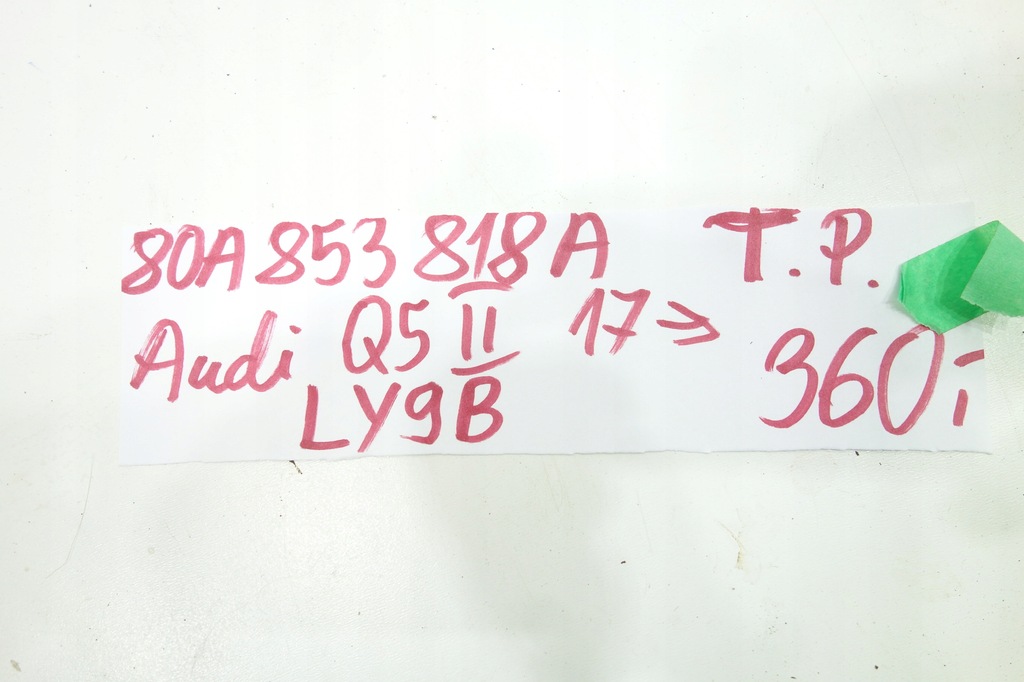 80A 853 818 A T.P.
Audi Q5 II 17→ 360,-
LY9B